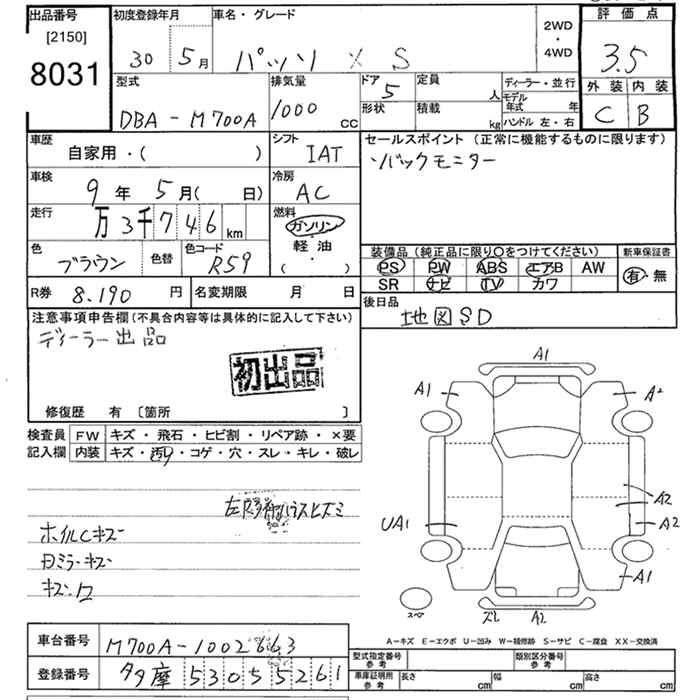 出品番号
[2150]
8031
初度登録年月
30 5月
車名・グレード
パッソ X S
2WD
・
4WD
評価点
3.5
外装 内装
C B
型式
DBA - M700A
排気量
1000 cc
ドア 5
形状
定員 人
積載 kg
ディーラー・並行
モデル年式 年
ハンドル 左・右
車歴
自家用・( )
シフト
IAT
セールスポイント (正常に機能するものに限ります)
バックモニター
車検
9年 5月( 日)
冷房
AC
走行
万 3千746 km
燃料
ガソリン
・
軽油
( ・ )
色
ブラウン
色替
色コード
R59
装備品 (純正品に限り○をつけてください)
PS PW ABS エアB AW
SR ナビ TV カワ
新車保証書
有・無
R券 8.190 円
名変期限 月 日
後日品
地図SD
注意事項申告欄(不具合内容等は具体的に記入して下さい)
ディーラー出品
初出品
修復歴 有 [箇所 ]
検査員
記入欄
FW キズ・飛石・ヒビ割・リペア跡・×要
内装 キズ・汚れ・コゲ・穴・スレ・キレ・破レ
ホイルCキズ
Dミラーキズ
A1
A1
A2
UA1
A2
A2
A1
スペア
ズレ A2
A−キズ E−エクボ U−凹み W−補修跡 S−サビ C−腐食 XX−交換済
車台番号
M700A-1002663
登録番号
530 5 5261
型式指定番号
参考
類別区分番号
参考
車庫証明用
参考
長さ cm
幅 cm
高さ cm